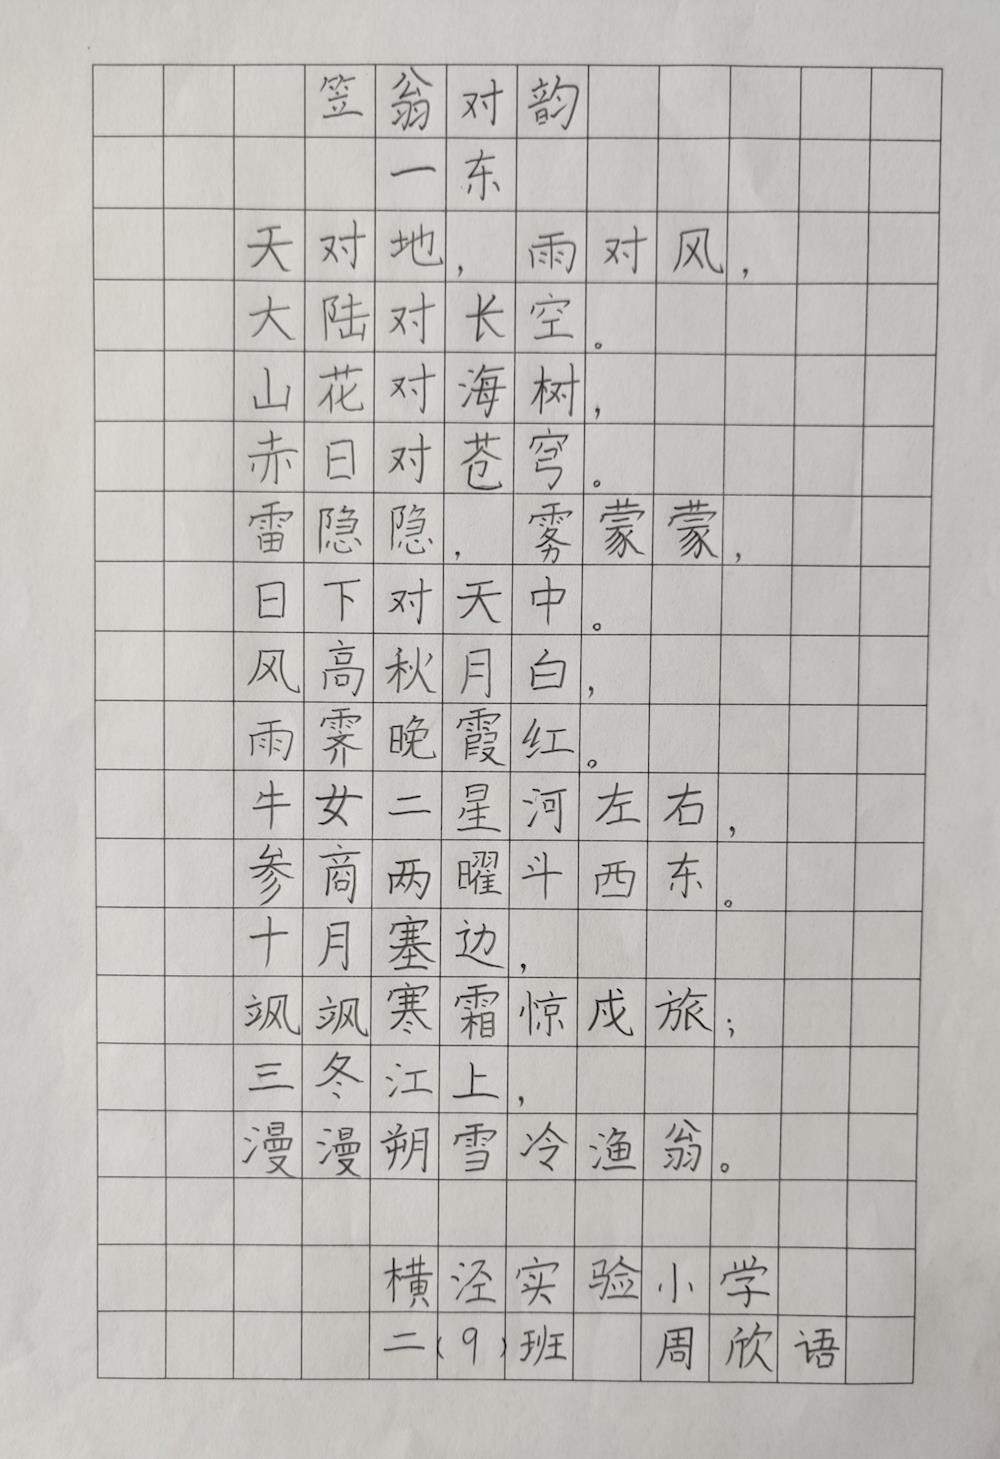 笠翁对韵
一东
天对地，雨对风，
大陆对长空。
山花对海树，
赤日对苍穹。
雷隐隐，雾蒙蒙，
日下对天中。
风高秋月白，
雨霁晚霞红。
牛女二星河左右，
参商两曜斗西东。
十月塞边，
飒飒寒霜惊戍旅；
三冬江上，
漫漫朔雪冷渔翁。
横泾实验小学
二（9）班 周欣语